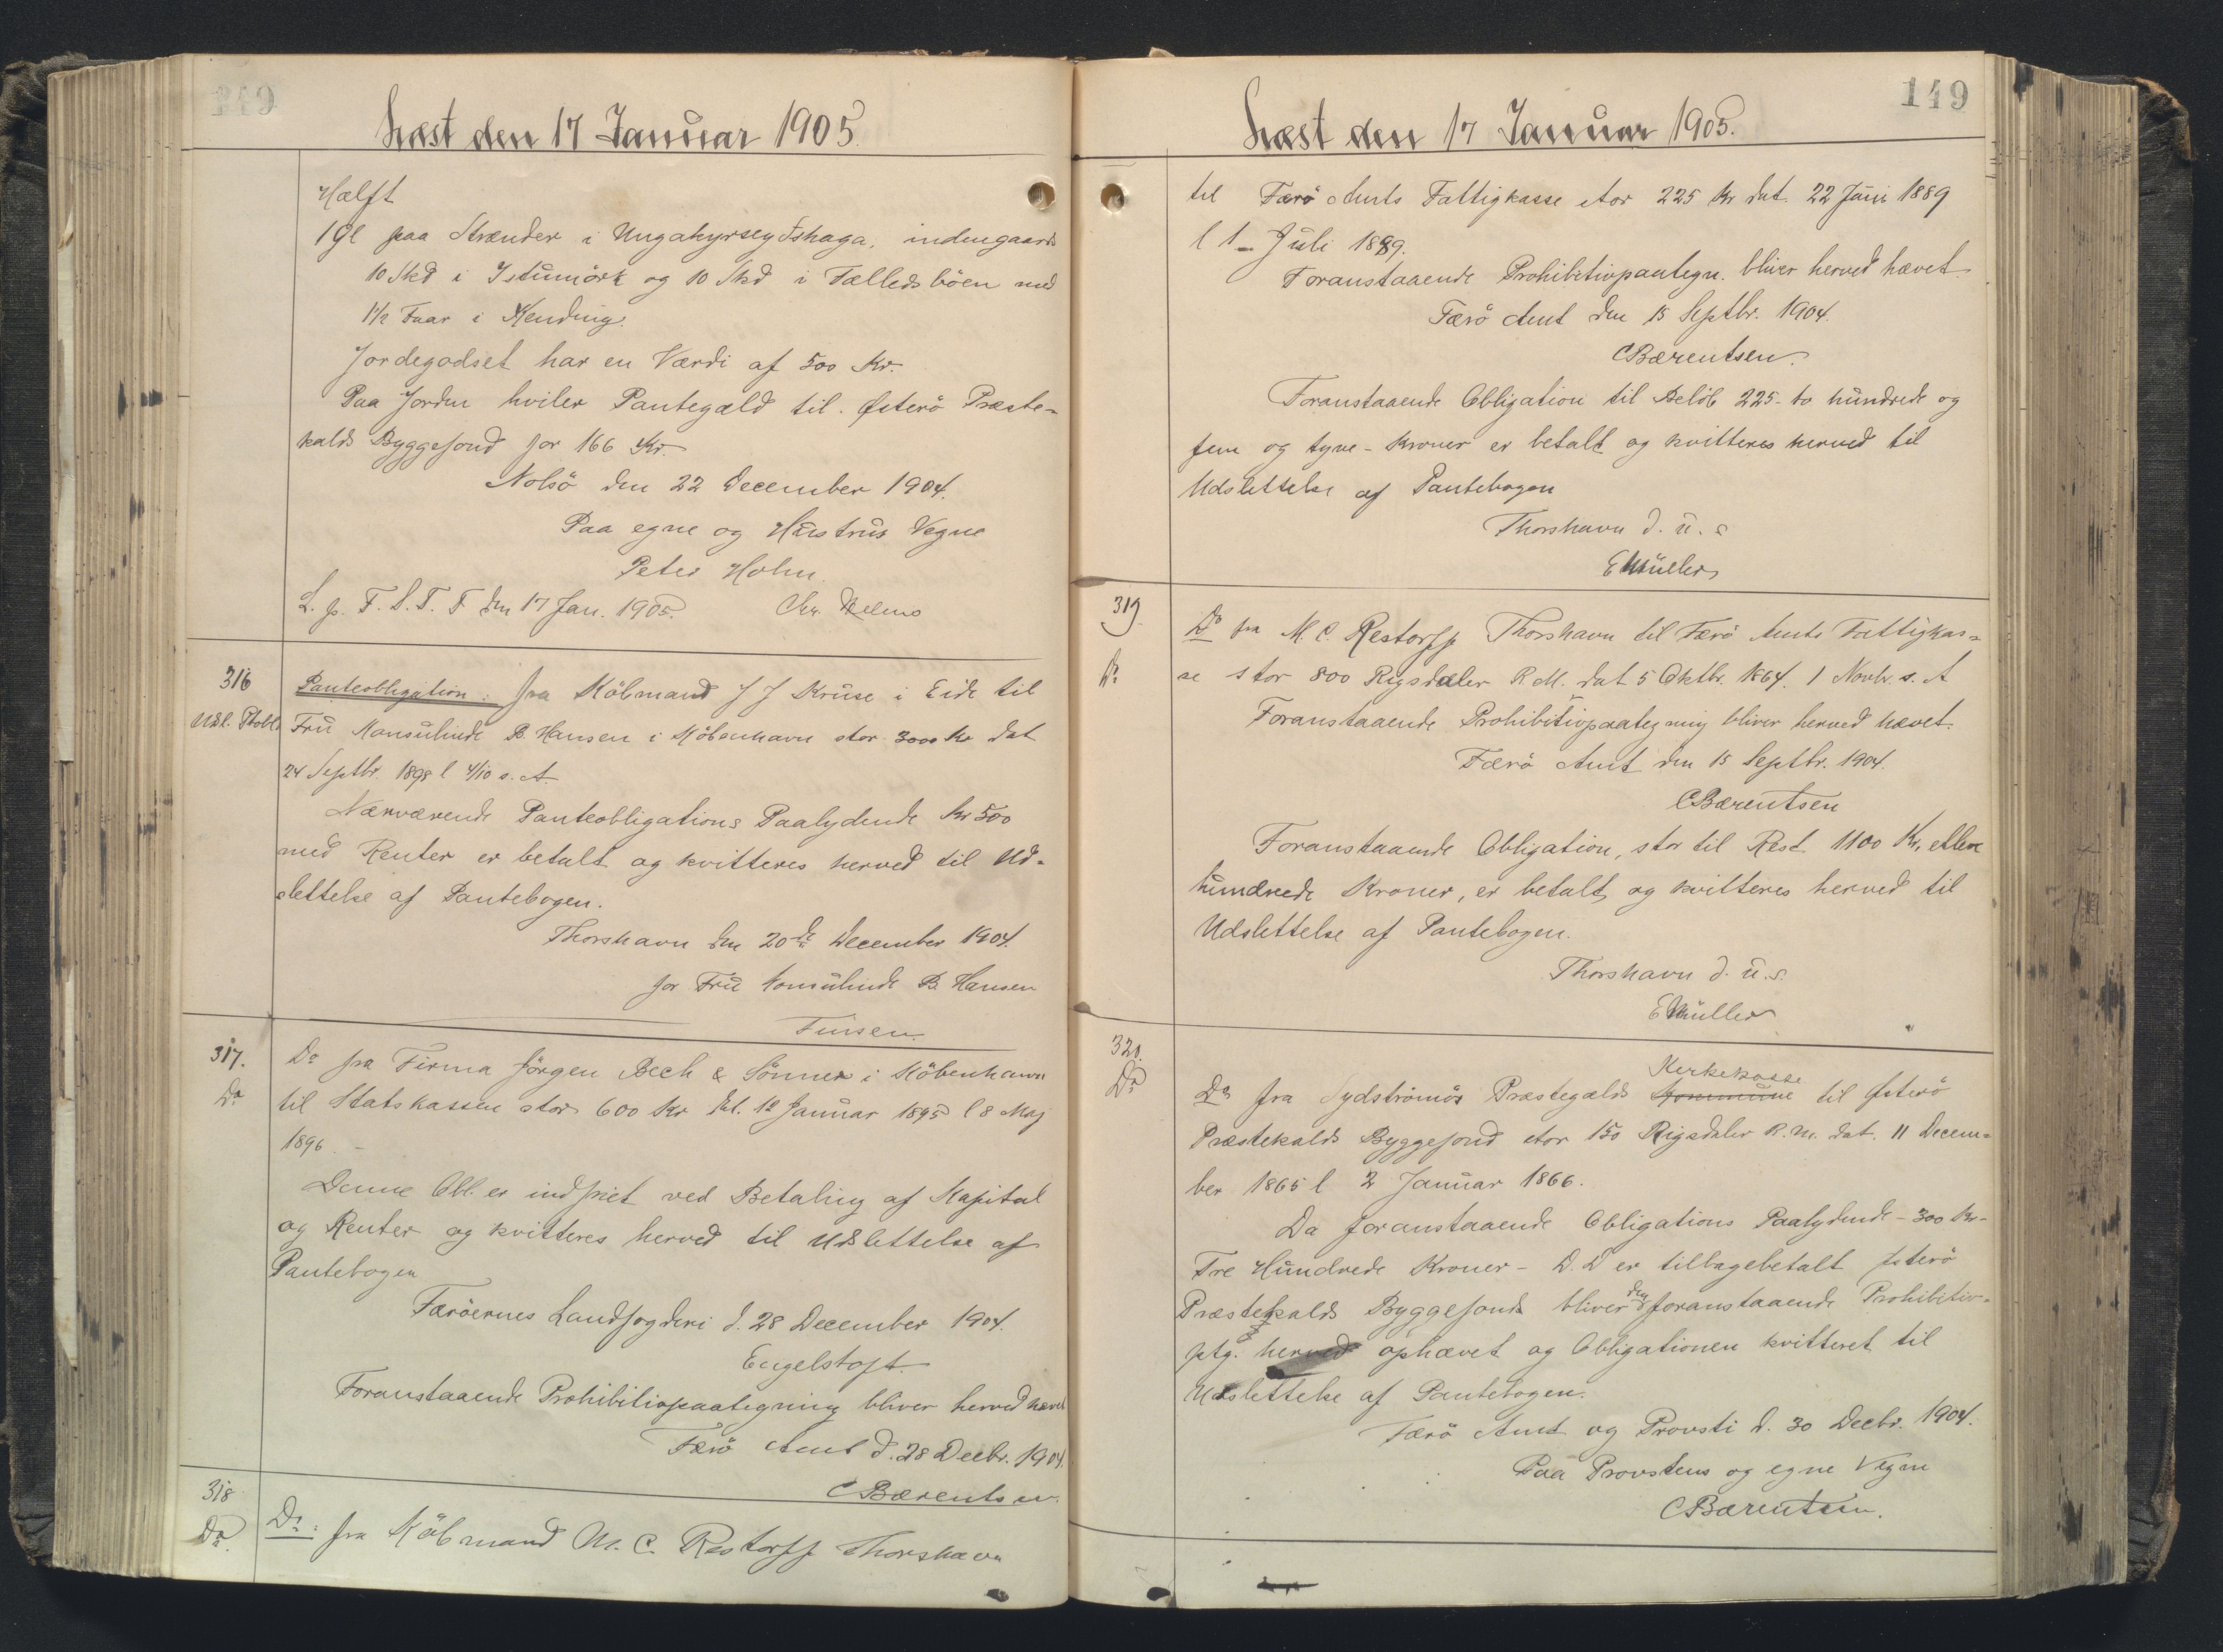 149
Læst den 17 Januar 1905.
Halft
1 Gl paa Strænder i indengaards
10 Skd i og 10 Skd i Fælledsböen med
1½ Faar i Kending.
Jordegodset har en Værdi af 500 Kr.
Paa Jorden hviler Pantegæld til Østerö Præste-
kalds Byggefond for 166 Kr.
Nolsö den 22 December 1904.
Paa egne og Hustrus Vegne
Peter Holm.
L. p. F. S. T. F den 17 Jan. 1905. Chr.
316 Panteobligation: fra Köbmand J J Kruse i Eide til
Udl. Ptobl. Fru Konsulinde B. Hansen i Köbenhavn stor 3000 Kr dat
24 Septbr. 1898 l 4/10 s. A.
Nærværende Panteobligations Paalydende Kr 500
med Renter er betalt og kvitteres herved til Ud-
slettelse af Pantebogen.
Thorshavn den 20de December 1904.
for Fru Konsulinde B. Hansen
Finsen.
317. Do fra Firma Jörgen Bech & Sönner i Köbenhavn
Do til Statskassen stor 600 Kr dat. 12 Januar 1895 l 8 Maj
1896.-
Denne Obl. er indfriet ved Betaling af Kapital
og Renter og kvitteres herved til Udslettelse af
Pantebogen
Færöernes Landfogderi d. 28 December 1904.
Engelstoft.
Foranstaaende Prohibitivpaategning bliver herved hævet
Færö Amt d. 28 Decbr. 1904.
CBærentsen.
318 Do: fra Köbmand M. C. Restorff Thorshavn
Do.
149
Læst den 17 Januar 1905.
til Færö Amts Fattigkasse stor 225 Kr dat. 22 Juni 1889
l 1 - Juli 1889.
Foranstaaende Prohibitivpaategn. bliver herved hævet
Færö Amt den 15 Septbr. 1904.
CBærentsen.
Foranstaaende Obligation til Belöb 225 - to hundrede og
fem og tyve - Kroner er betalt og kvitteres herved til
Udslettelse af Pantebogen
Thorshavn d. u. s
EMüller
319. Do fra M. C. Restorff Thorshavn til Færö Amts Fattigkas-
Do se stor 800 Rigsdaler R. M. dat 5 Oktbr. 1864. l Novbr. s. A
Foranstaaende Prohibitivpaategning bliver herved hævet.
Færö Amt den 15 Septbr. 1904.
CBærentsen
Foranstaaende Obligation, stor til Rest 1100 Kr, elleve
hundrede Kroner, er betalt og kvitteres herved til
Udslettelse af Pantebogen.
Thorshavn d. u. s.
EMüller
320. Kirkekasse
Do Do fra Sydströmös Præstegælds Kommune til Østerö
Præstekalds Byggefond stor 150 Rigsdaler R. M. dat. 11 Decem-
ber 1865 l 2 Januar 1866.
Da foranstaaende Obligations Paalydende - 300 Kr -
Tre Hundrede Kroner - D. D er tilbagebetalt Østerö
Præstekalds Byggefond bliver den foranstaaende Prohibitiv-
ptg. herved ophævet og Obligationen kvitteret til
Udslettelse af Pantebogen.
Færö Amt og Provsti d. 30 Decbr. 1904.
Paa Provstens og egne Vegne
CBærentsen.